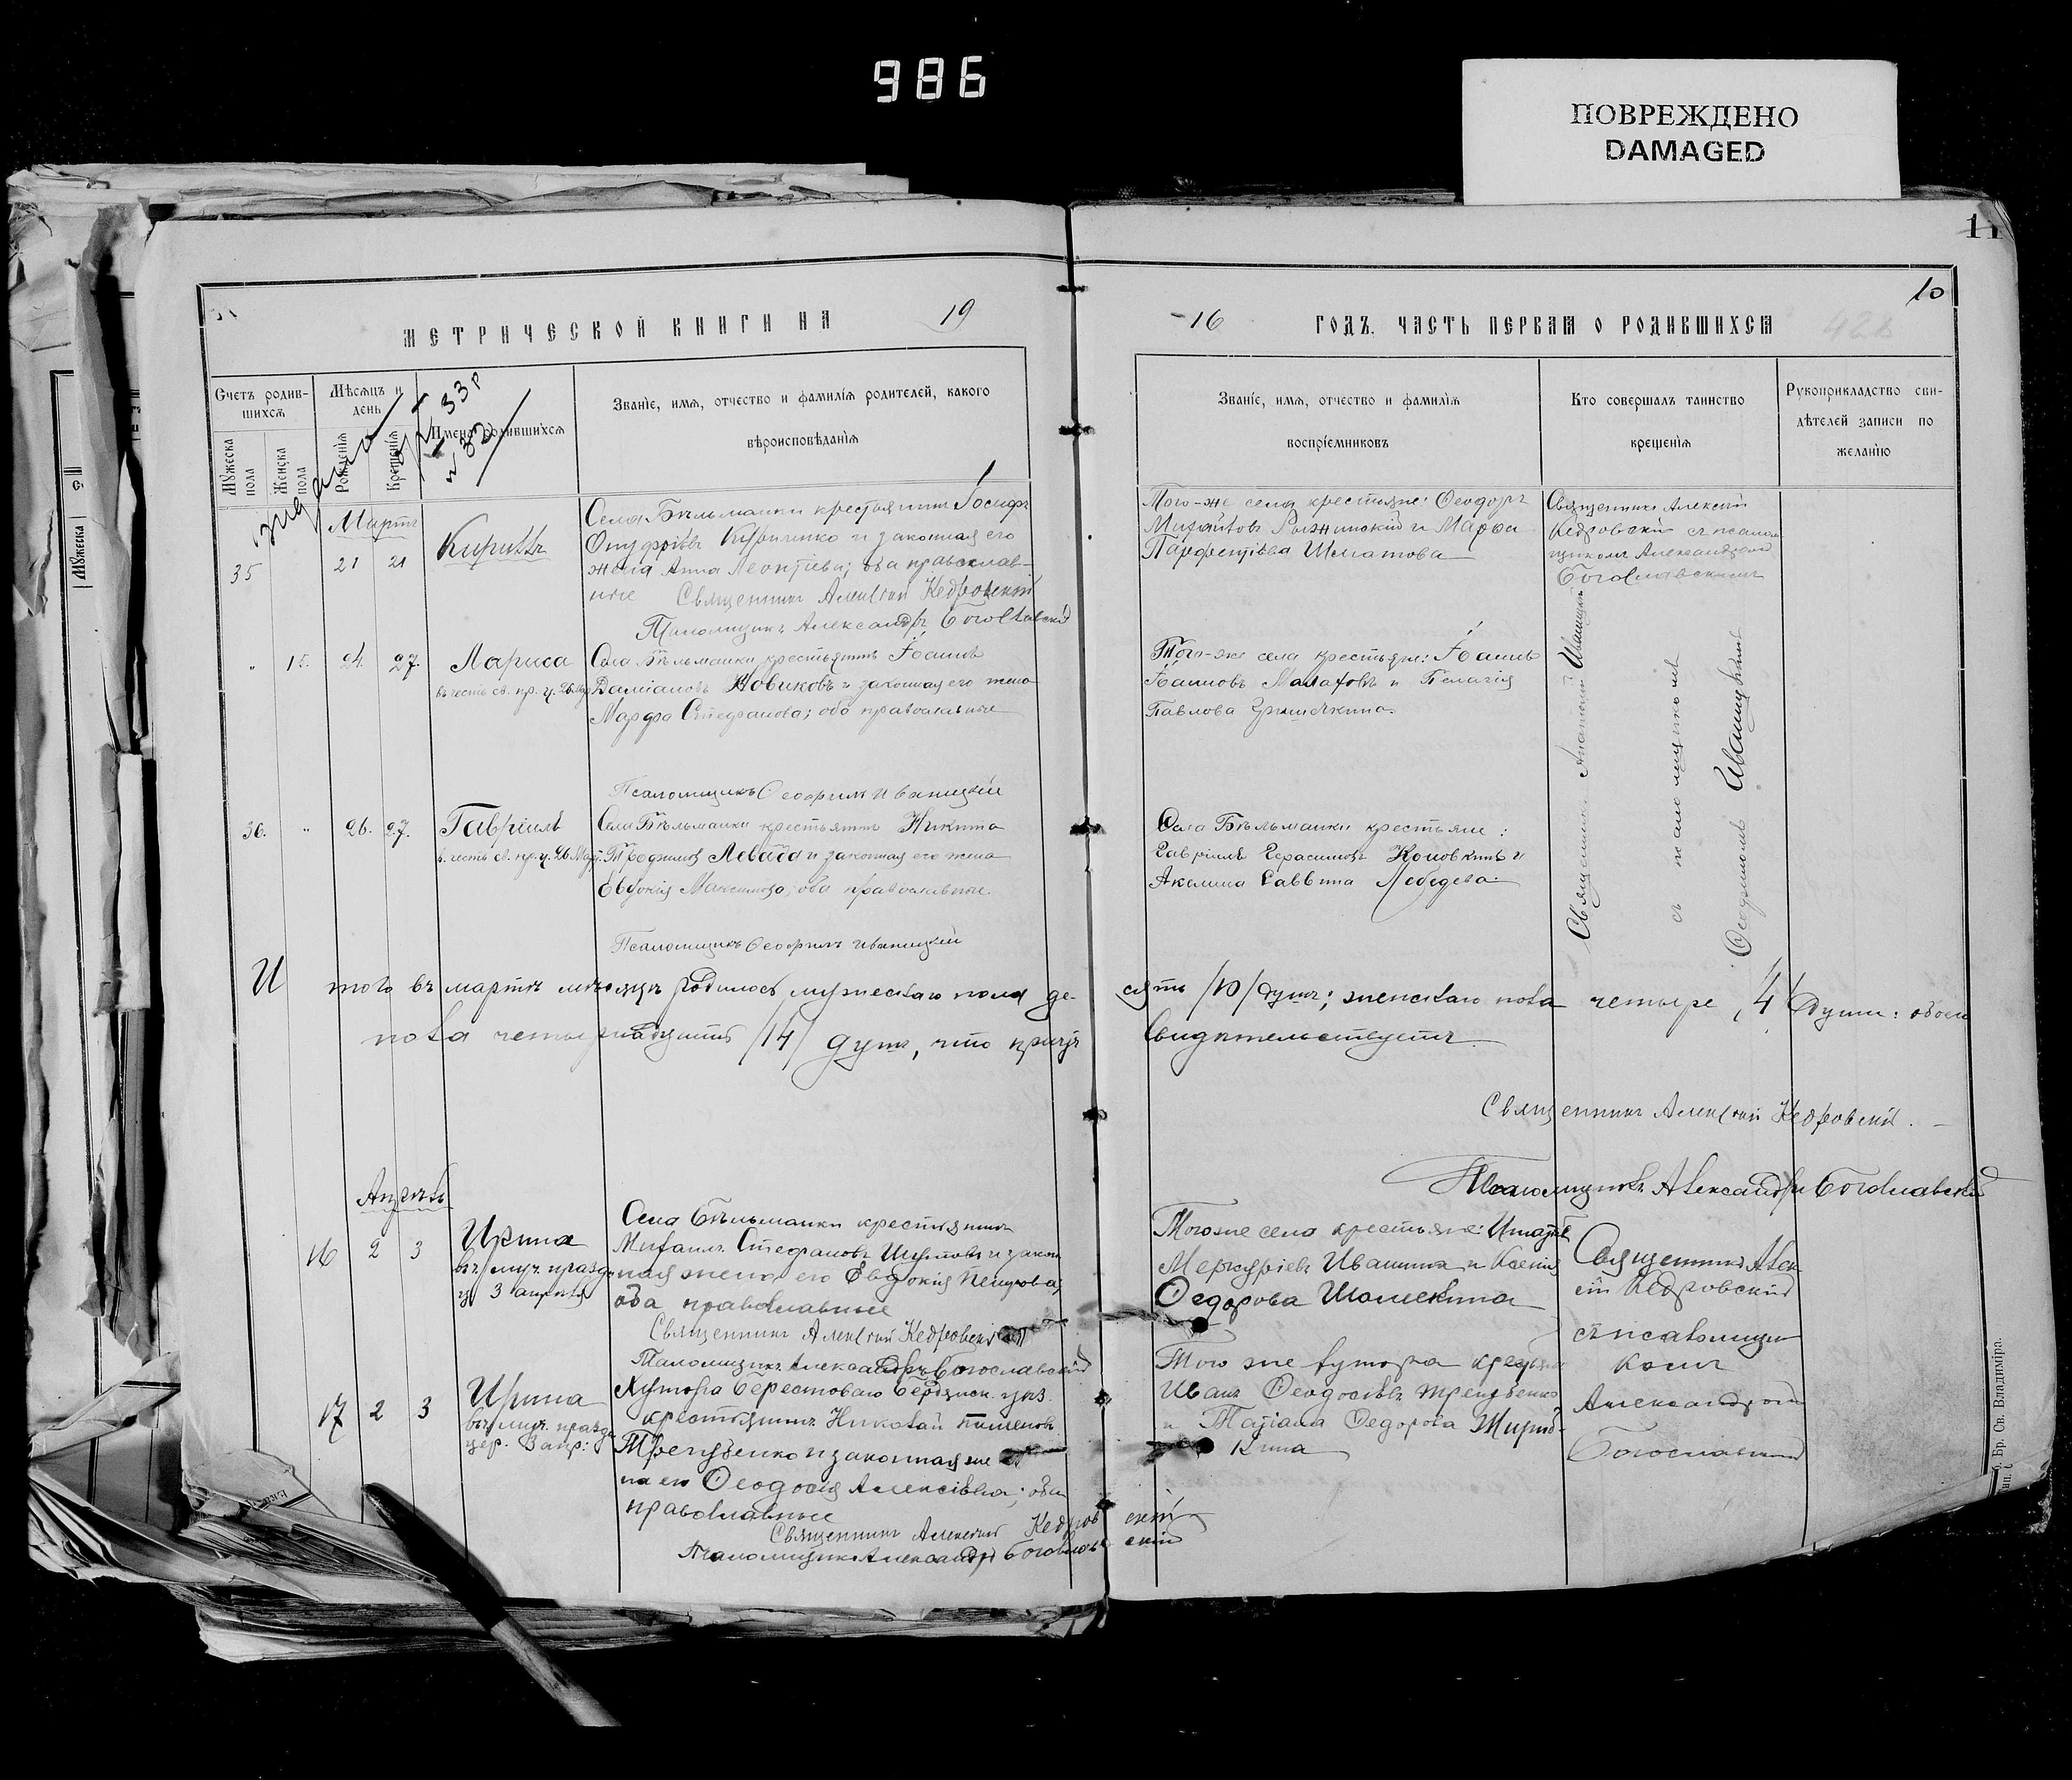 986
ПОВРЕЖДЕНО
DAMAGED
11
10
МЕТРИЧЕСКОЙ КНИГИ НА 19
-16 ГОДЪ. ЧАСТЬ ПЕРВАЯ О РОДИВШИХСЯ
428
Счетъ родив-
шихся
Мужеска пола
Женска пола
Мѣсяцъ и
день
Рожденія
Крещенія
Имена родившихся
Званіе, имя, отчество и фамилія родителей, какого
вѣроисповѣданія
Званіе, имя, отчество и фамилія
воспріемниковъ
Кто совершалъ таинство
крещенія
Рукоприкладство сви-
дѣтелей записи по
желанію
Мартъ
35 21 21 Кириллъ
Села Бѣльманки крестьянинъ Іосифъ
Онуфріевъ Кириленко и законная его
жена Анна Леонтіева; оба православ-
ные Священникъ Алексій Кедровскій
Псаломщикъ Александръ Богославскій
Того-же села крестьяне: Ѳеодоръ
Михайловъ и Марѳа
Парфентіева
Священникъ Алексій
Кедровскій съ псалом
щикомъ Александромъ
Богославскимъ
" 15. 24. 27. Лариса
въ честь св. пр. ц. 26 Мар
Села Бѣльманки крестьянинъ Іоаннъ
Даміановъ Новиковъ и законная его жена
Марфа Стефанова; оба православные
Псаломщикъ Ѳеофилъ Иваницкій
Того-же села крестьяне: Іоаннъ
Іоанновъ Малаховъ и Пелагія
Павлова Гришечкина.
Священникъ Иваницкій
съ псаломщикомъ
Ѳеофиломъ Иваницкимъ
36. " 26. 27. Гавріилъ
въ честь св. пр. ц. 26 Мар.
Села Бѣльманки крестьянинъ Никита
Трофимовъ и законная его жена
Евдокія Максимова; оба православные.
Псаломщикъ Ѳеофилъ Иваницкій
Села Бѣльманки крестьяне:
Гавріилъ Герасимовъ и
Акилина Саввина Лебедева.
Итого въ мартѣ мѣсяцѣ родилось мужескаго пола де-
сять /10/ душъ; женскаго пола четыре /4/ души: обоего
пола четырнадцать /14/ душъ, что причтъ
свидѣтельствуетъ.
Священникъ Алексій Кедровскій.
Псаломщикъ Александръ Богославскій
Апрѣль
16 2 3 Ирина
въ муч. празд.
3 апрѣля
Села Бѣльманки крестьянинъ
Михаилъ Стефановъ и закон
ная жена его Евдокія Петрова,
оба православные
Священникъ Алексій Кедровскій
Псаломщикъ Александръ Богославскій
Тогоже села крестьяне:
Меркуріевъ Ивашина и Ксенія
Ѳедорова
Священникъ Алек
сій Кедровскій
съ псаломщи
комъ
17 2 3 Ирина
въ муч. празд.
цер. 3 апр:
Хутора Берестоваго Бердянск. уѣз.
крестьянинъ Николай Пименовъ
и законная же
на его Ѳеодосія Алексіевна; оба
православные
Священникъ Алексій Кедровскій
Псаломщикъ Александръ Богославскій
Того же хутора
Иванъ Ѳеодосіевъ
и Татіана Ѳедорова
кина
Александромъ
Богославскимъ
Бр. Св. Владиміра.